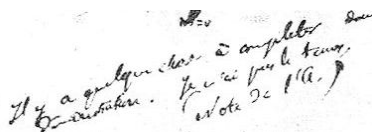 Il y a quelque chose à completer dans
la demonstration. Je n'ai pas le temps.
(Note de l'A.)